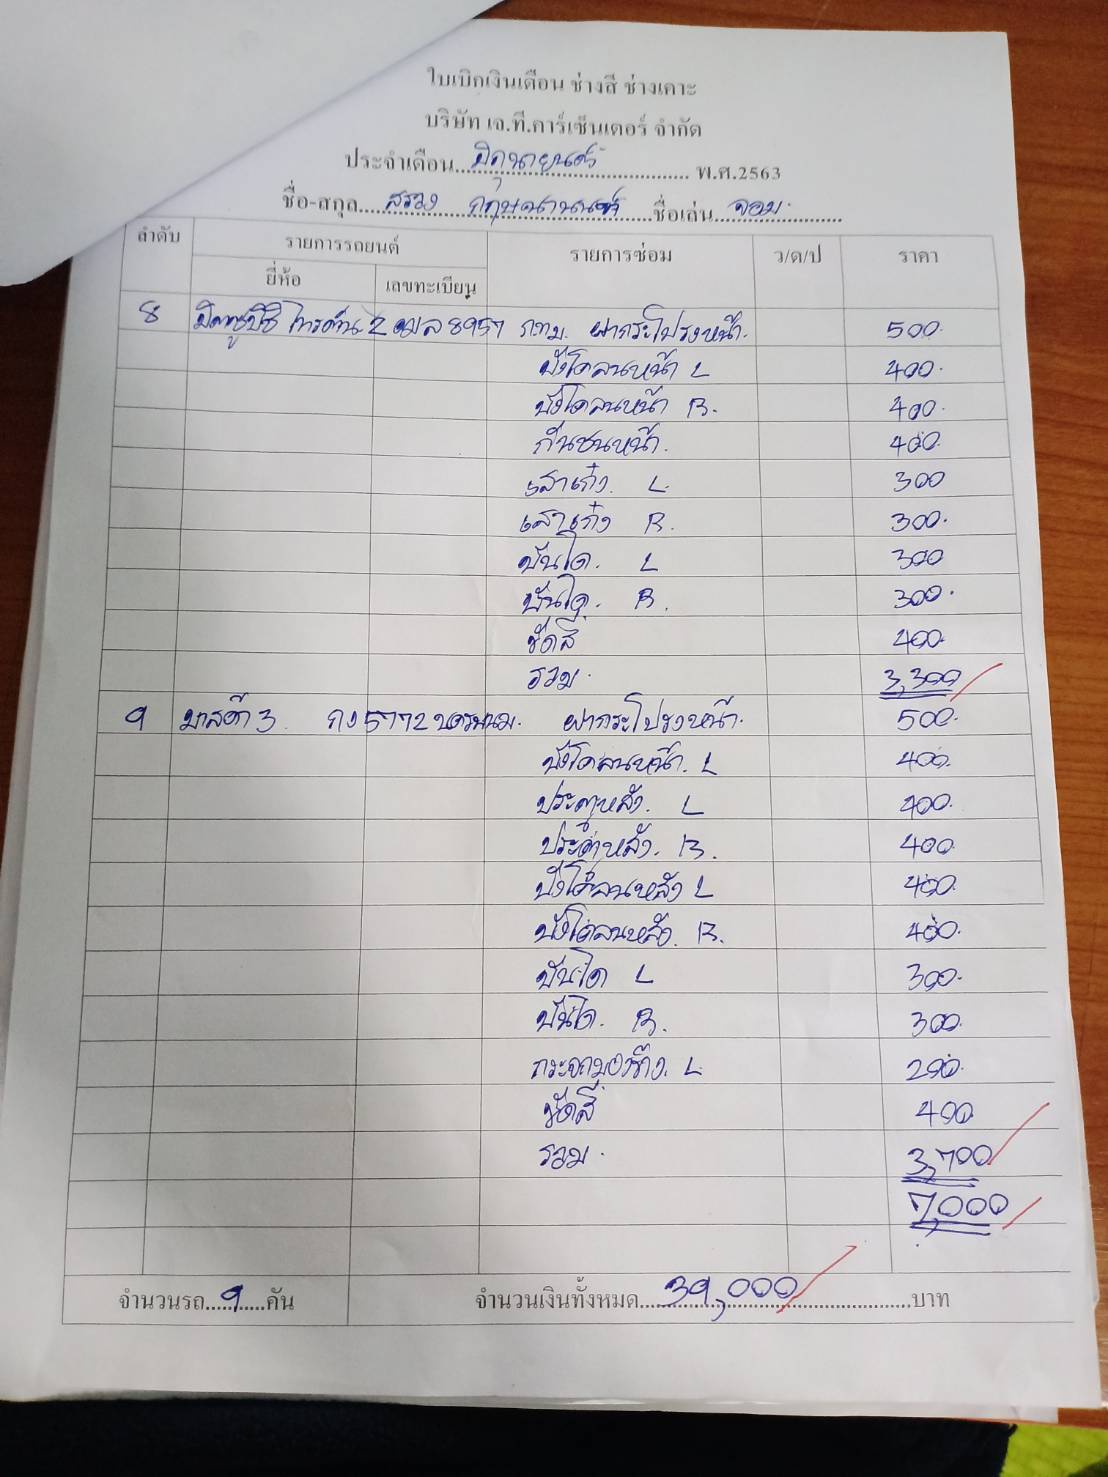 ใบเบิกเงินเดือน ช่างสี ช่างเคาะ
บริษัท เจ.ที.คาร์เซ็นเตอร์ จำกัด
ประจำเดือน มิถุนายน พ.ศ.2563
ชื่อ-สกุล ชื่อเล่น จอม
ลำดับ รายการรถยนต์ รายการซ่อม ว/ด/ป ราคา
ยี่ห้อ เลขทะเบียน
8 มิตซูบิชิ ไทรตัน 8957 กทม. ฝากระโปรงหน้า. 500.
บังโคลนหน้า L 400.
บังโคลนหน้า R. 400.
กันชนหน้า. 400.
เสาเก๋ง. L 300
เสาเก๋ง R. 300.
บันได. L 300
บันได. R. 300.
ขัดสี 400.
รวม. 3,300
9 มาสด้า 3 กง 5772 นครพนม. ฝากระโปรงหน้า. 500.
บังโคลนหน้า. L 400.
ประตูหลัง. L 400.
ประตูหลัง. R. 400.
บังโคลนหลัง L 400.
บังโคลนหลัง. R. 400.
บันได L 300.
บันได. R. 300.
กระจกมองข้าง. L 200.
ขัดสี 400
รวม. 3,700
7,000
จำนวนรถ 9 คัน จำนวนเงินทั้งหมด 39,000 บาท